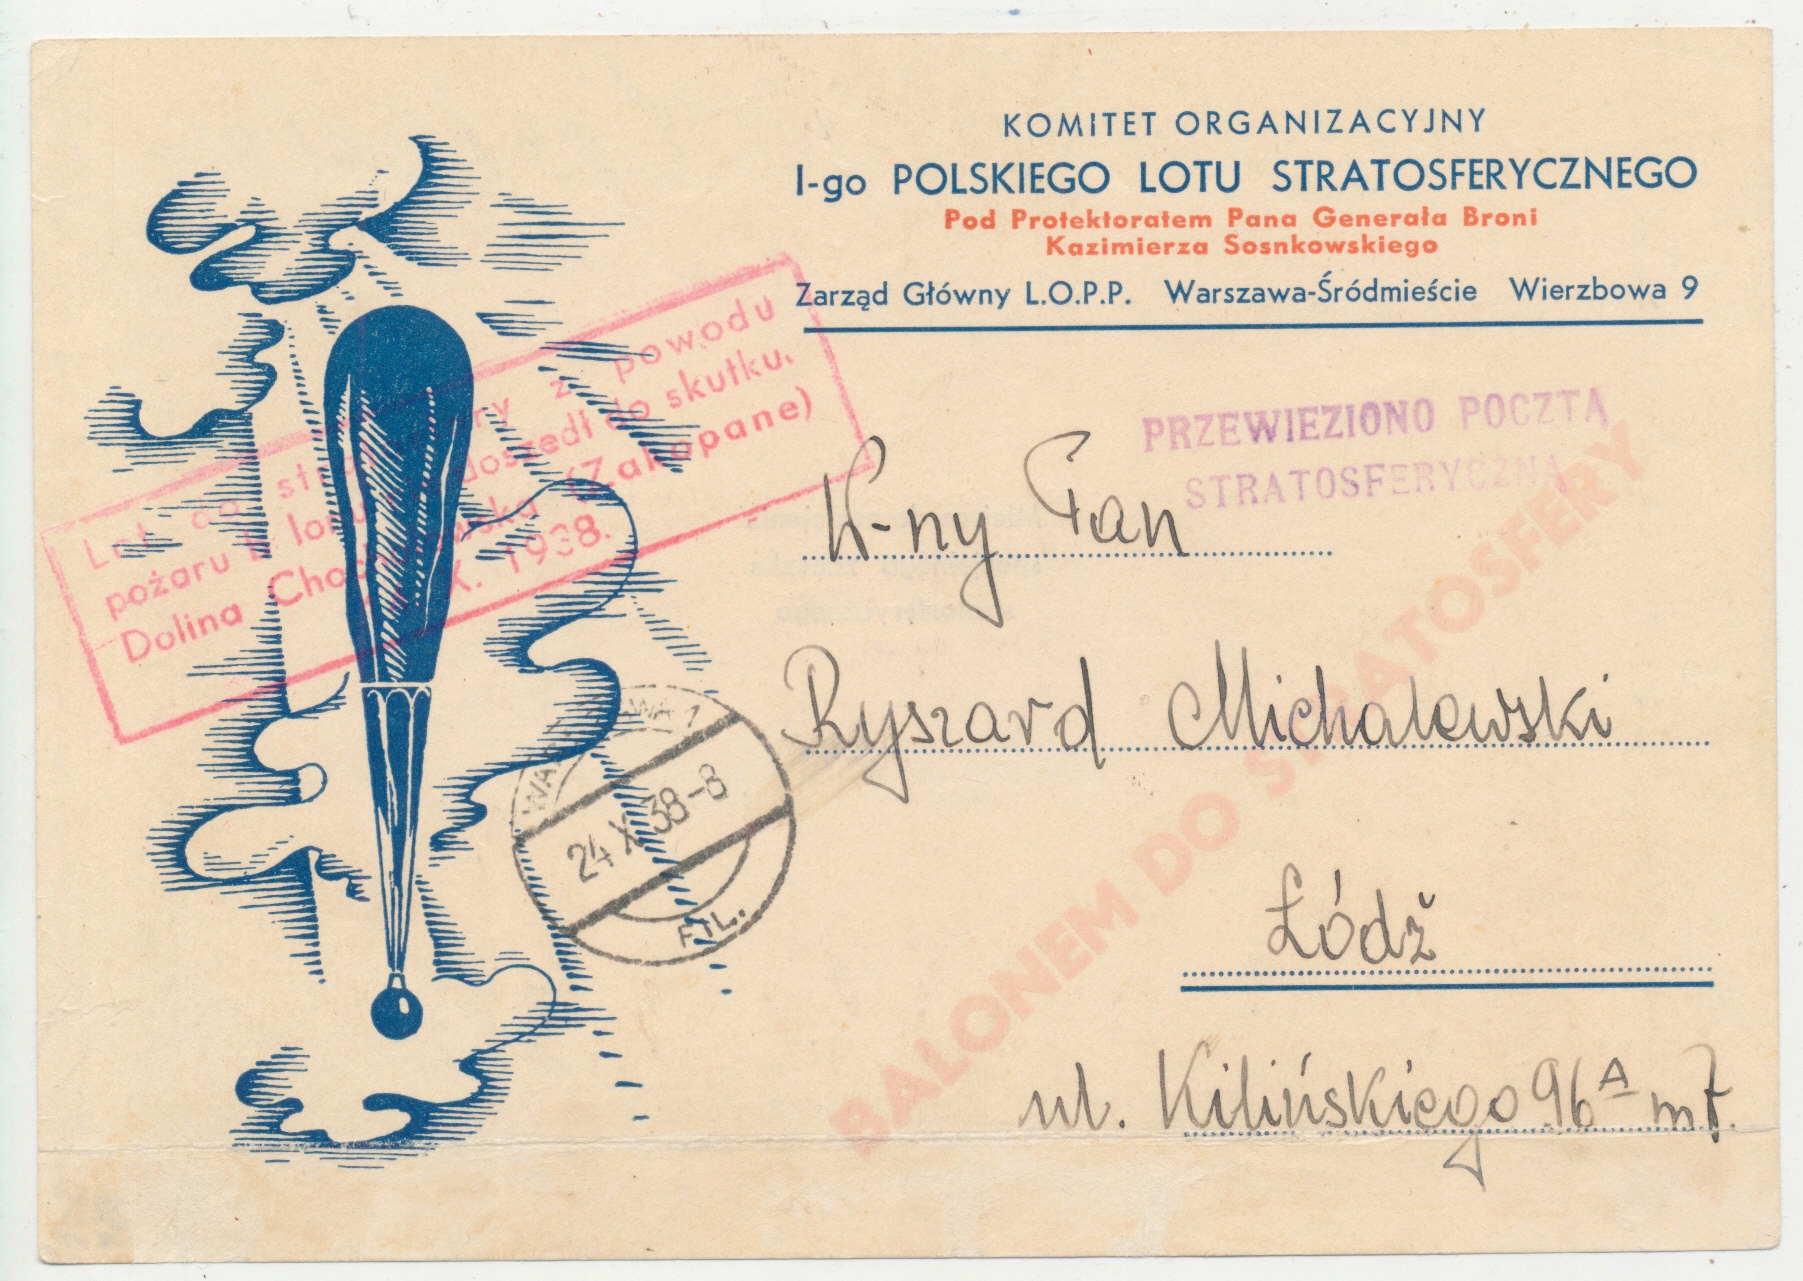 KOMITET ORGANIZACYJNY
I-go POLSKIEGO LOTU STRATOSFERYCZNEGO
Pod Protektoratem Pana Generała Broni
Kazimierza Sosnkowskiego
Zarząd Główny L.O.P.P. Warszawa-Śródmieście Wierzbowa 9
PRZEWIEZIONO POCZTĄ
STRATOSFERYCZNĄ
Lot do z powodu
pożaru doszedł do skutku.
Dolina (Zakopane)
X. 1938.
W-ny Pan
Ryszard Michalewski
Łódź
ul. Kilińskiego 96A m 7.
BALONEM DO STRATOSFERY
WARSZAWA 1
24 X 38-8
FIL.